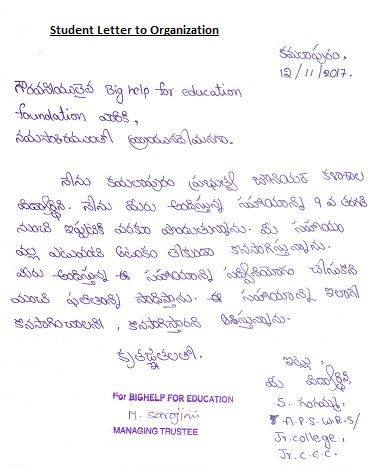 Student Letter to Organization
కమలాపురం,
12/11/2017.
గౌరవనీయులైన Big help for education
foundation వారికి,
నమస్కారములతో వ్రాయునది ఏమనగా.
నేను కమలాపురం ప్రభుత్వ జూనియర్ కళాశాల
విద్యార్థిని. నేను మీరు అందిస్తున్న సహాయాన్ని 9 వ తరగతి
నుంచి ఇప్పటి వరకూ పొందుతున్నాను. మీ సహాయం
వల్ల ఎటువంటి ఆటంకం లేకుండా కొనసాగిస్తున్నాను.
మీరు అందిస్తున్న ఈ సహాయాన్ని సద్వినియోగం చేసుకొని
మంచి ఫలితాన్ని సాధిస్తాను. ఈ సహాయాన్ని ఇలాగే
కొనసాగించాలని, కొనసాగిస్తారని ఆశిస్తున్నాను.
కృతజ్ఞతలతో.
ఇట్లు,
మీ విద్యార్థిని,
S. గంగమ్మ,
A.P.S.W.R.S/
Jr.college,
Jr.C.E.C.
For BIGHELP FOR EDUCATION
M. Sarojini
MANAGING TRUSTEE